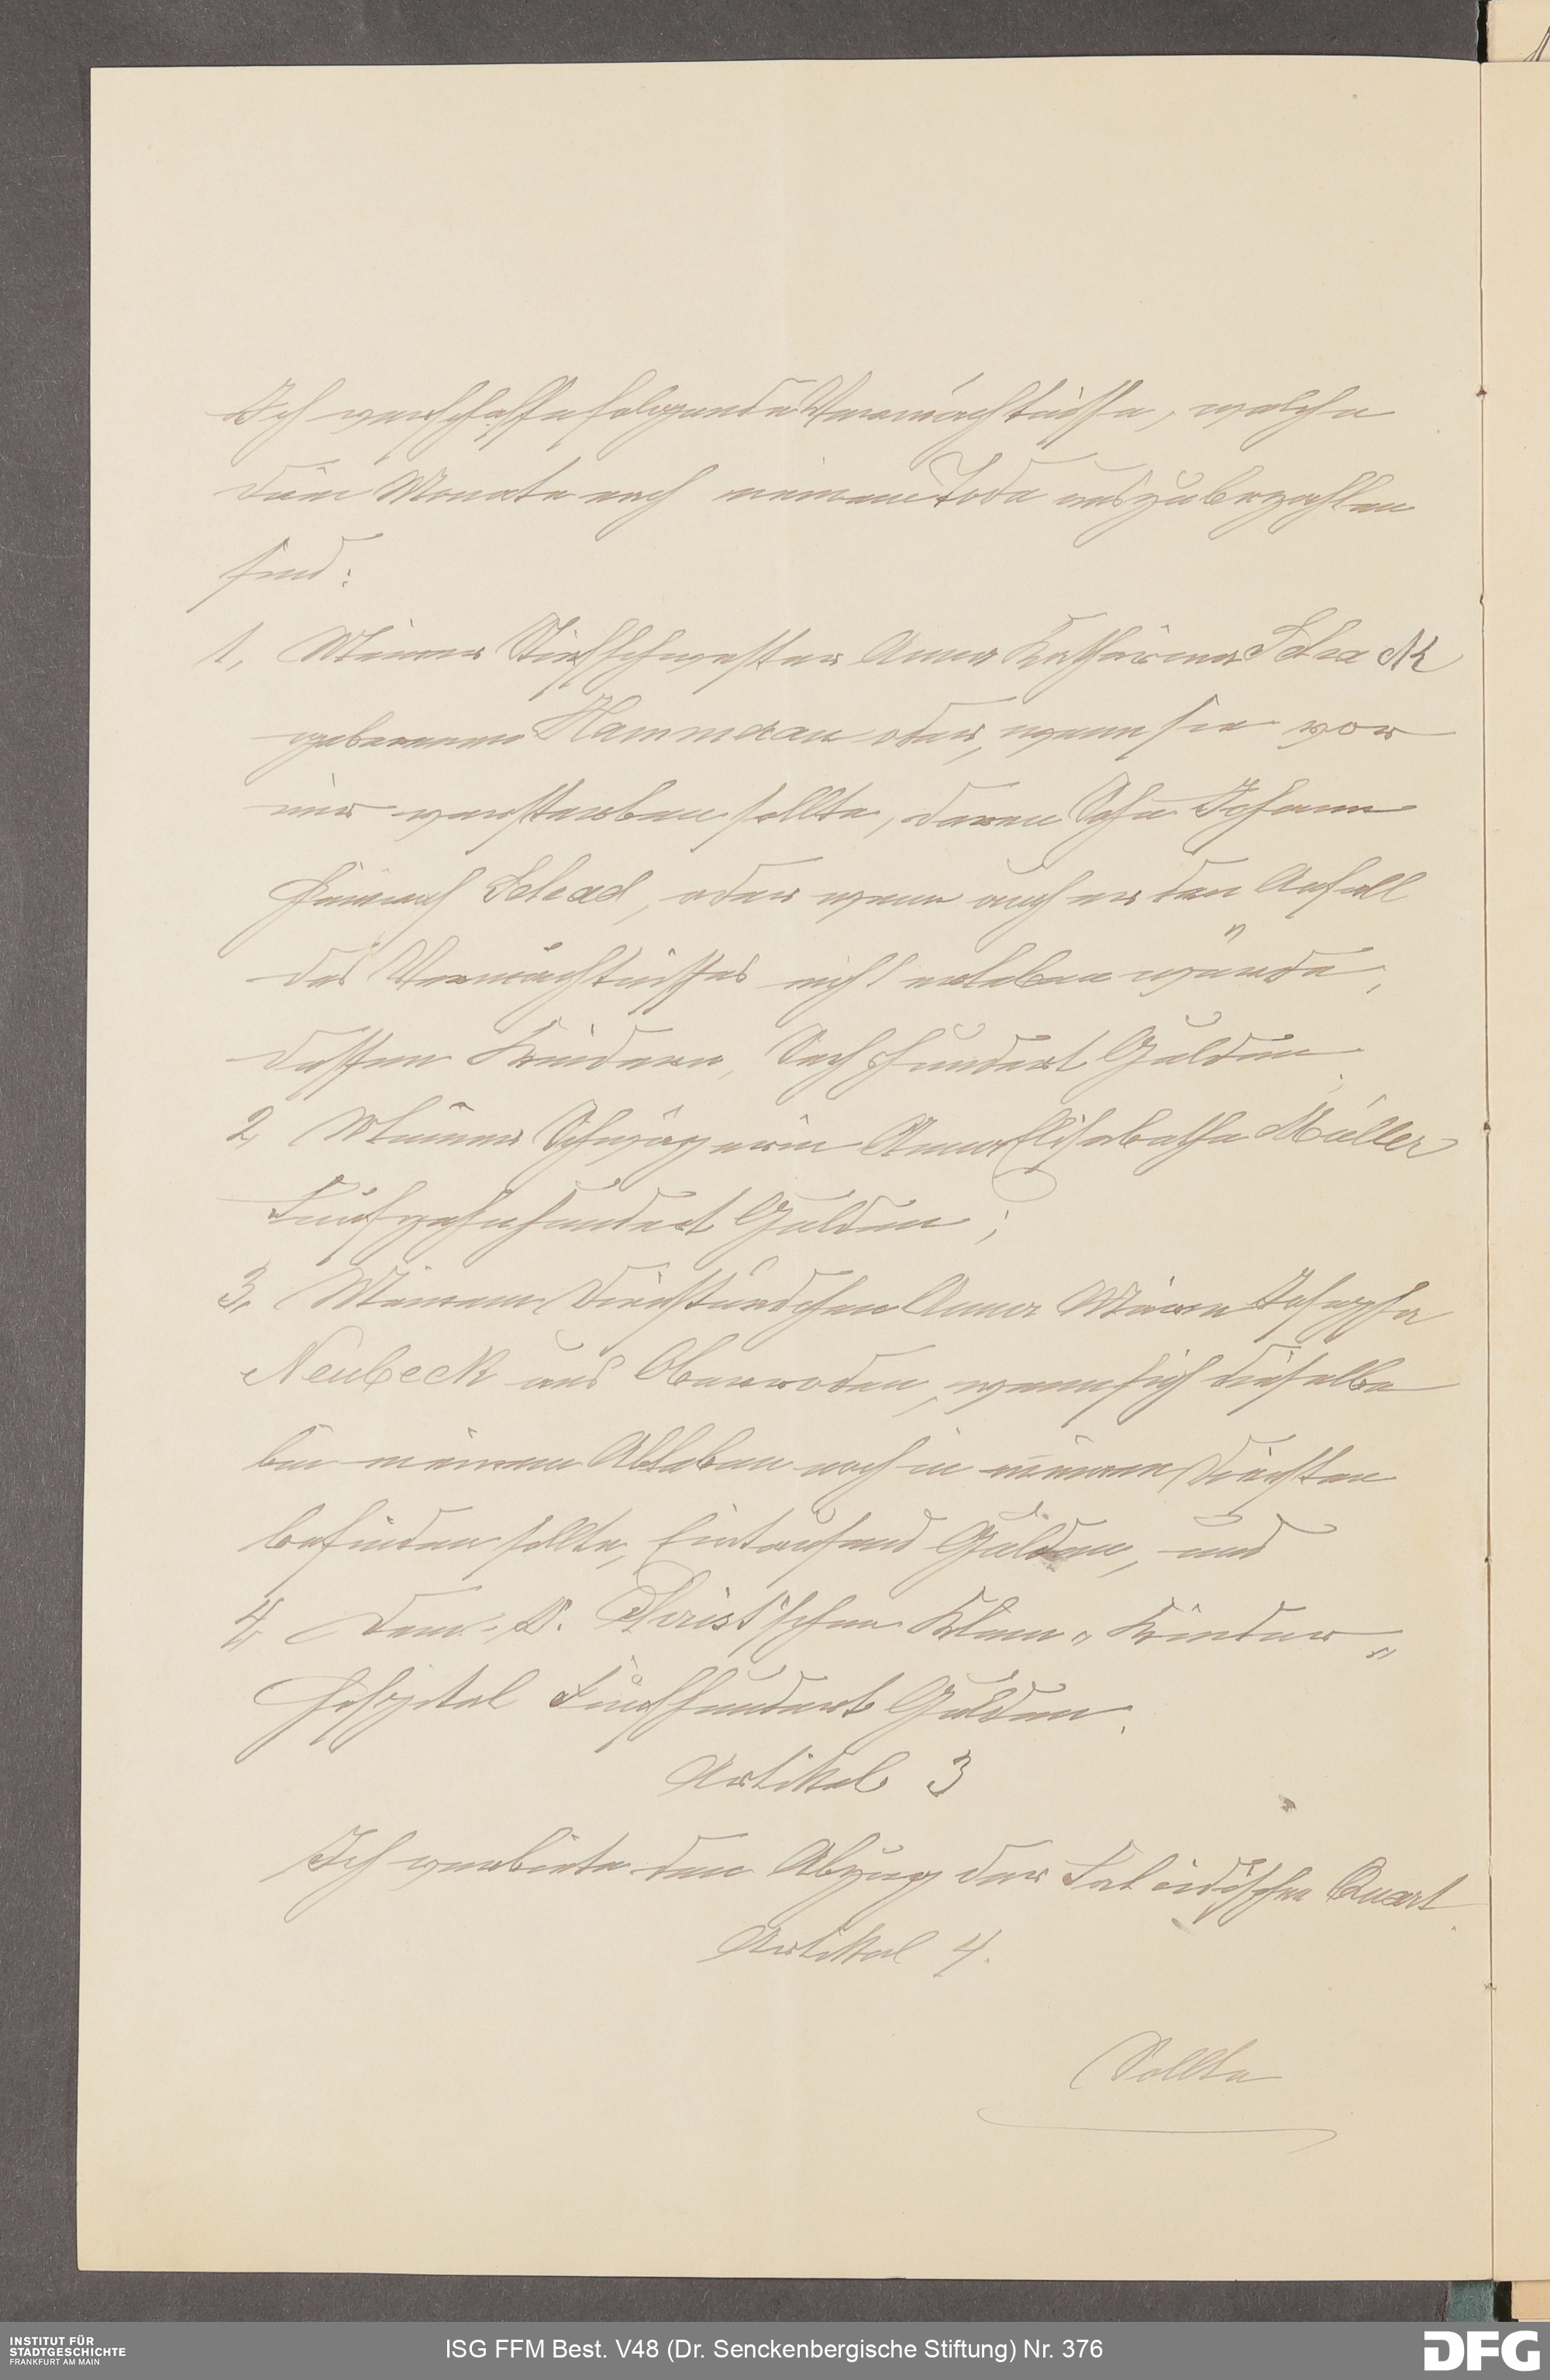 Ich verschaffe folgende Vermächtnisse, welche
drei Monate nach meinem Tode auszubezahlen
sind:
1, Meiner Stiefschwester Anna Katharina Schack
geborenen Hammeran oder, wenn sie vor
mir versterben sollte, deren Sohn Johann
Heinrich Schad, oder wenn auch er den Anfall
des Vermächtnisses nicht erleben würde,
dessen Kindern, Sechshundert Gulden.
2, Meiner Schwägerin Anna Elisabetha Müller
Fünfzehnhundert Gulden;
3, Meinem Dienstmädchen Anna Maria Josepha
Neubeck aus Oberroden, wenn sich dieselbe
bei meinem Ableben noch in meinen Diensten
befinden sollte, Eintausend Gulden, und
4, Dem Dr. Christ'schen Kinder„
Hospital Fünfhundert Gulden.
Artikel 3
Ich verbiete den Abzug der Falcidischen Quart.
Artikel 4.
Sollte
INSTITUT FÜR
STADTGESCHICHTE
FRANKFURT AM MAIN
ISG FFM Best. V48 (Dr. Senckenbergische Stiftung) Nr. 376
DFG